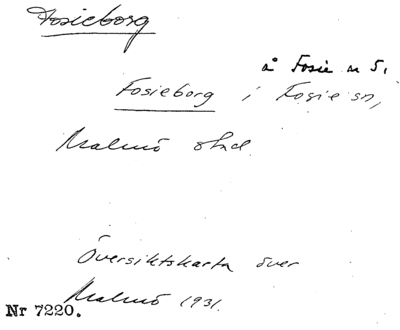 Fosieborg
å Fosie n 5,
Fosieborg i Fosie sn,
Malmö stad.
Översiktskarta över
Malmö 1931.
Nr 7220.